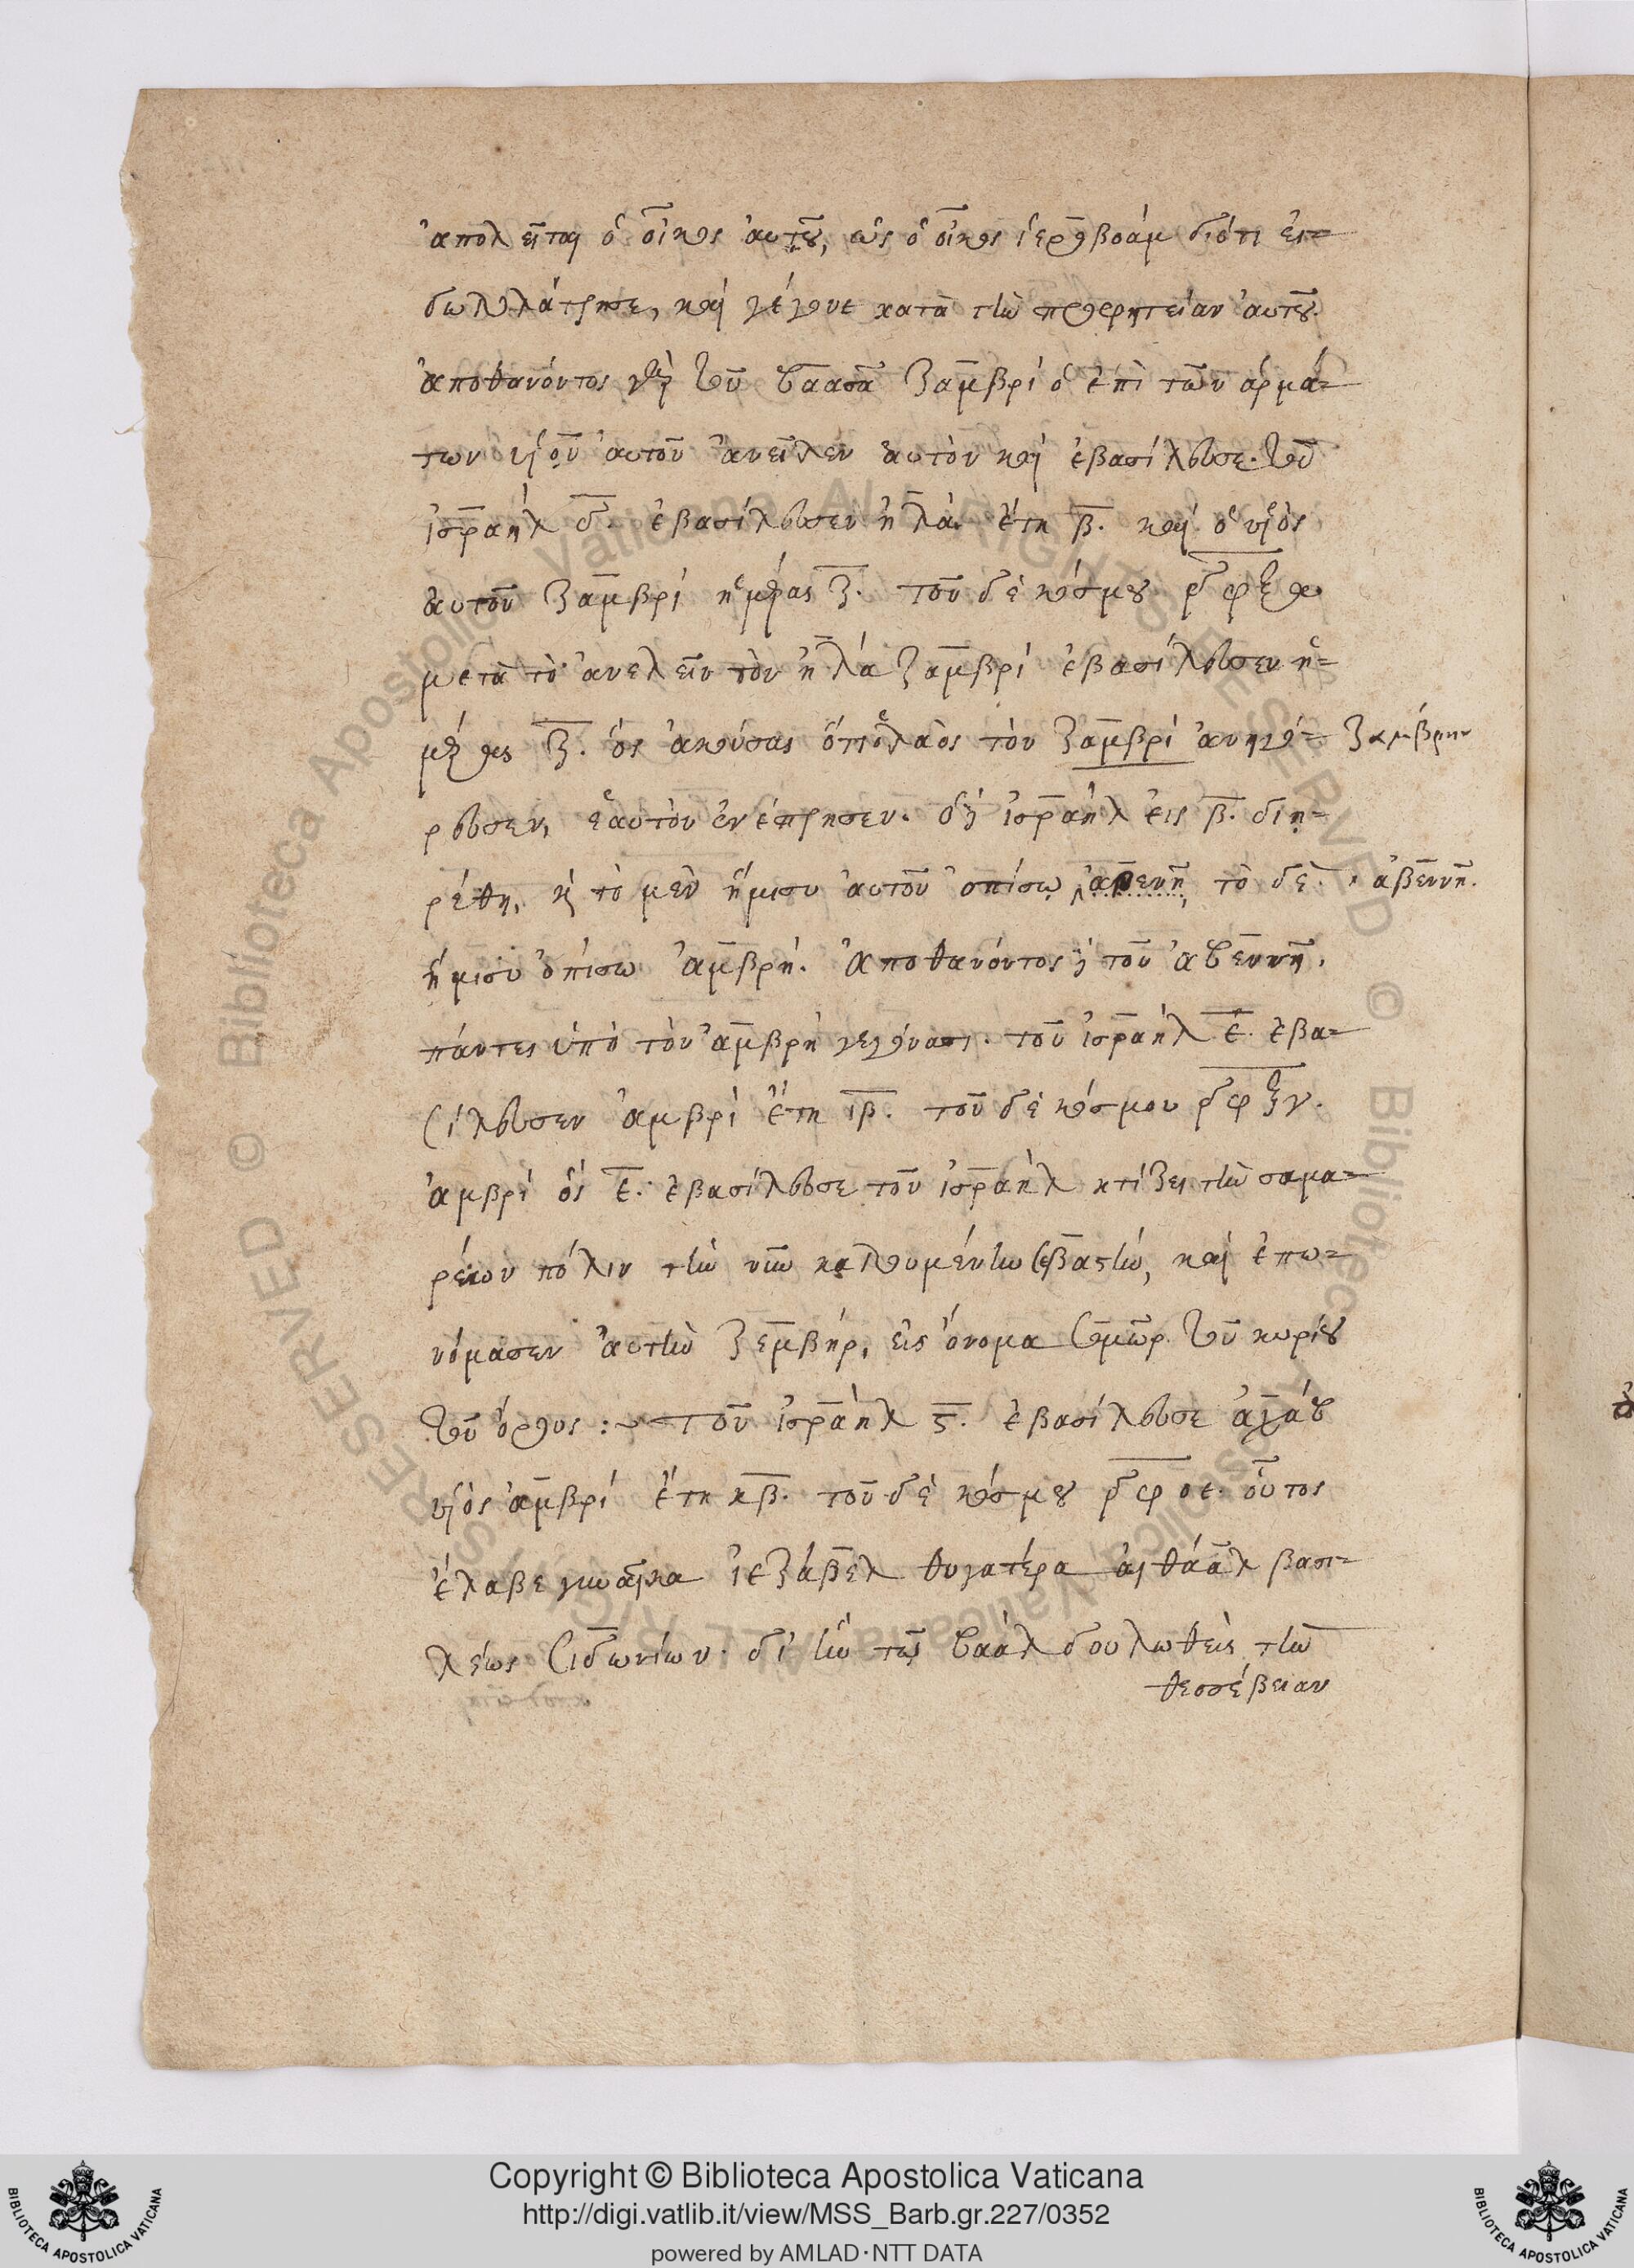 ἀπολεῖται ὁ οἶκος αὐτοῦ, ὡς ὁ οἶκος ἱεροβοάμ διότι εἰ-
δωλολάτρησε, καὶ γέγονε κατὰ τὴν προφητείαν αὐτοῦ.
ἀποθανόντος γὰρ τοῦ βαασᾶ ζαμβρί ὁ ἐπὶ τῶν ἁρμά-
των υἱοῦ αὐτοῦ ἀνεῖλεν αὐτὸν καὶ ἐβασίλευσε. τοῦ
ἰσραὴλ δ. ἐβασίλευσεν ἠλὰ ἔτη β. καὶ ὁ υἱὸς
αὐτοῦ ζαμβρί ἡμέρας ζ. τοῦ δὲ κόσμου
μετὰ τὸ ἀνελεῖν τὸν ἠλά ζαμβρί ἐβασίλευσεν ἡ-
μέρας ζ. ὃς ἀκούσας ὅτι ὁ λαὸς τὸν ζαμβρί ἀνηγό- ζαμβρην
ρευσεν, ἑαυτὸν ἐνέπρησεν. ὁ ἰσραὴλ εἰς β. διῃ-
ρέθη, κ τὸ μὲν ἥμισυ αὐτοῦ ὀπίσω τὸ δὲ ἀβεννῆ.
ἥμισυ ὀπίσω ἀμβρή. ἀποθανόντος τοῦ ἀβεννῆ.
πάντες ὑπὸ τὸν ἀμβρὴ γεγόνασι. τοῦ ἰσραὴλ ε. ἐβα-
σίλευσεν ἀμβρὶ ἔτη ιβ. τοῦ δὲ κόσμου
ἀμβρί ὃς ε. ἐβασίλευσε τοῦ ἰσραὴλ κτίζει τὴν σαμα-
ρείον πόλιν τὴν νῦν καλουμένην σεβαστήν, καὶ ἐπω-
νόμασεν αὐτὴν ζεμβήρ, εἰς ὄνομα σεμὼρ τοῦ κυρίου
τοῦ ὄρους : τοῦ ἰσραὴλ ς. ἐβασίλευσε ἀχάβ
υἱὸς ἀμβρί ἔτη κβ. τοῦ δὲ κόσμου ͵δφοε. οὗτος
ἔλαβε γυναῖκα ἰεζάβελ θυγατέρα αἰθάαλ βασι-
λέως σιδωνίων. δι' ἣν τῷ βαὰλ δουλωθεὶς τὴν
θεοσέβειαν
Copyright © Biblioteca Apostolica Vaticana
http://digi.vatlib.it/view/MSS_Barb.gr.227/0352
powered by AMLAD·NTT DATA